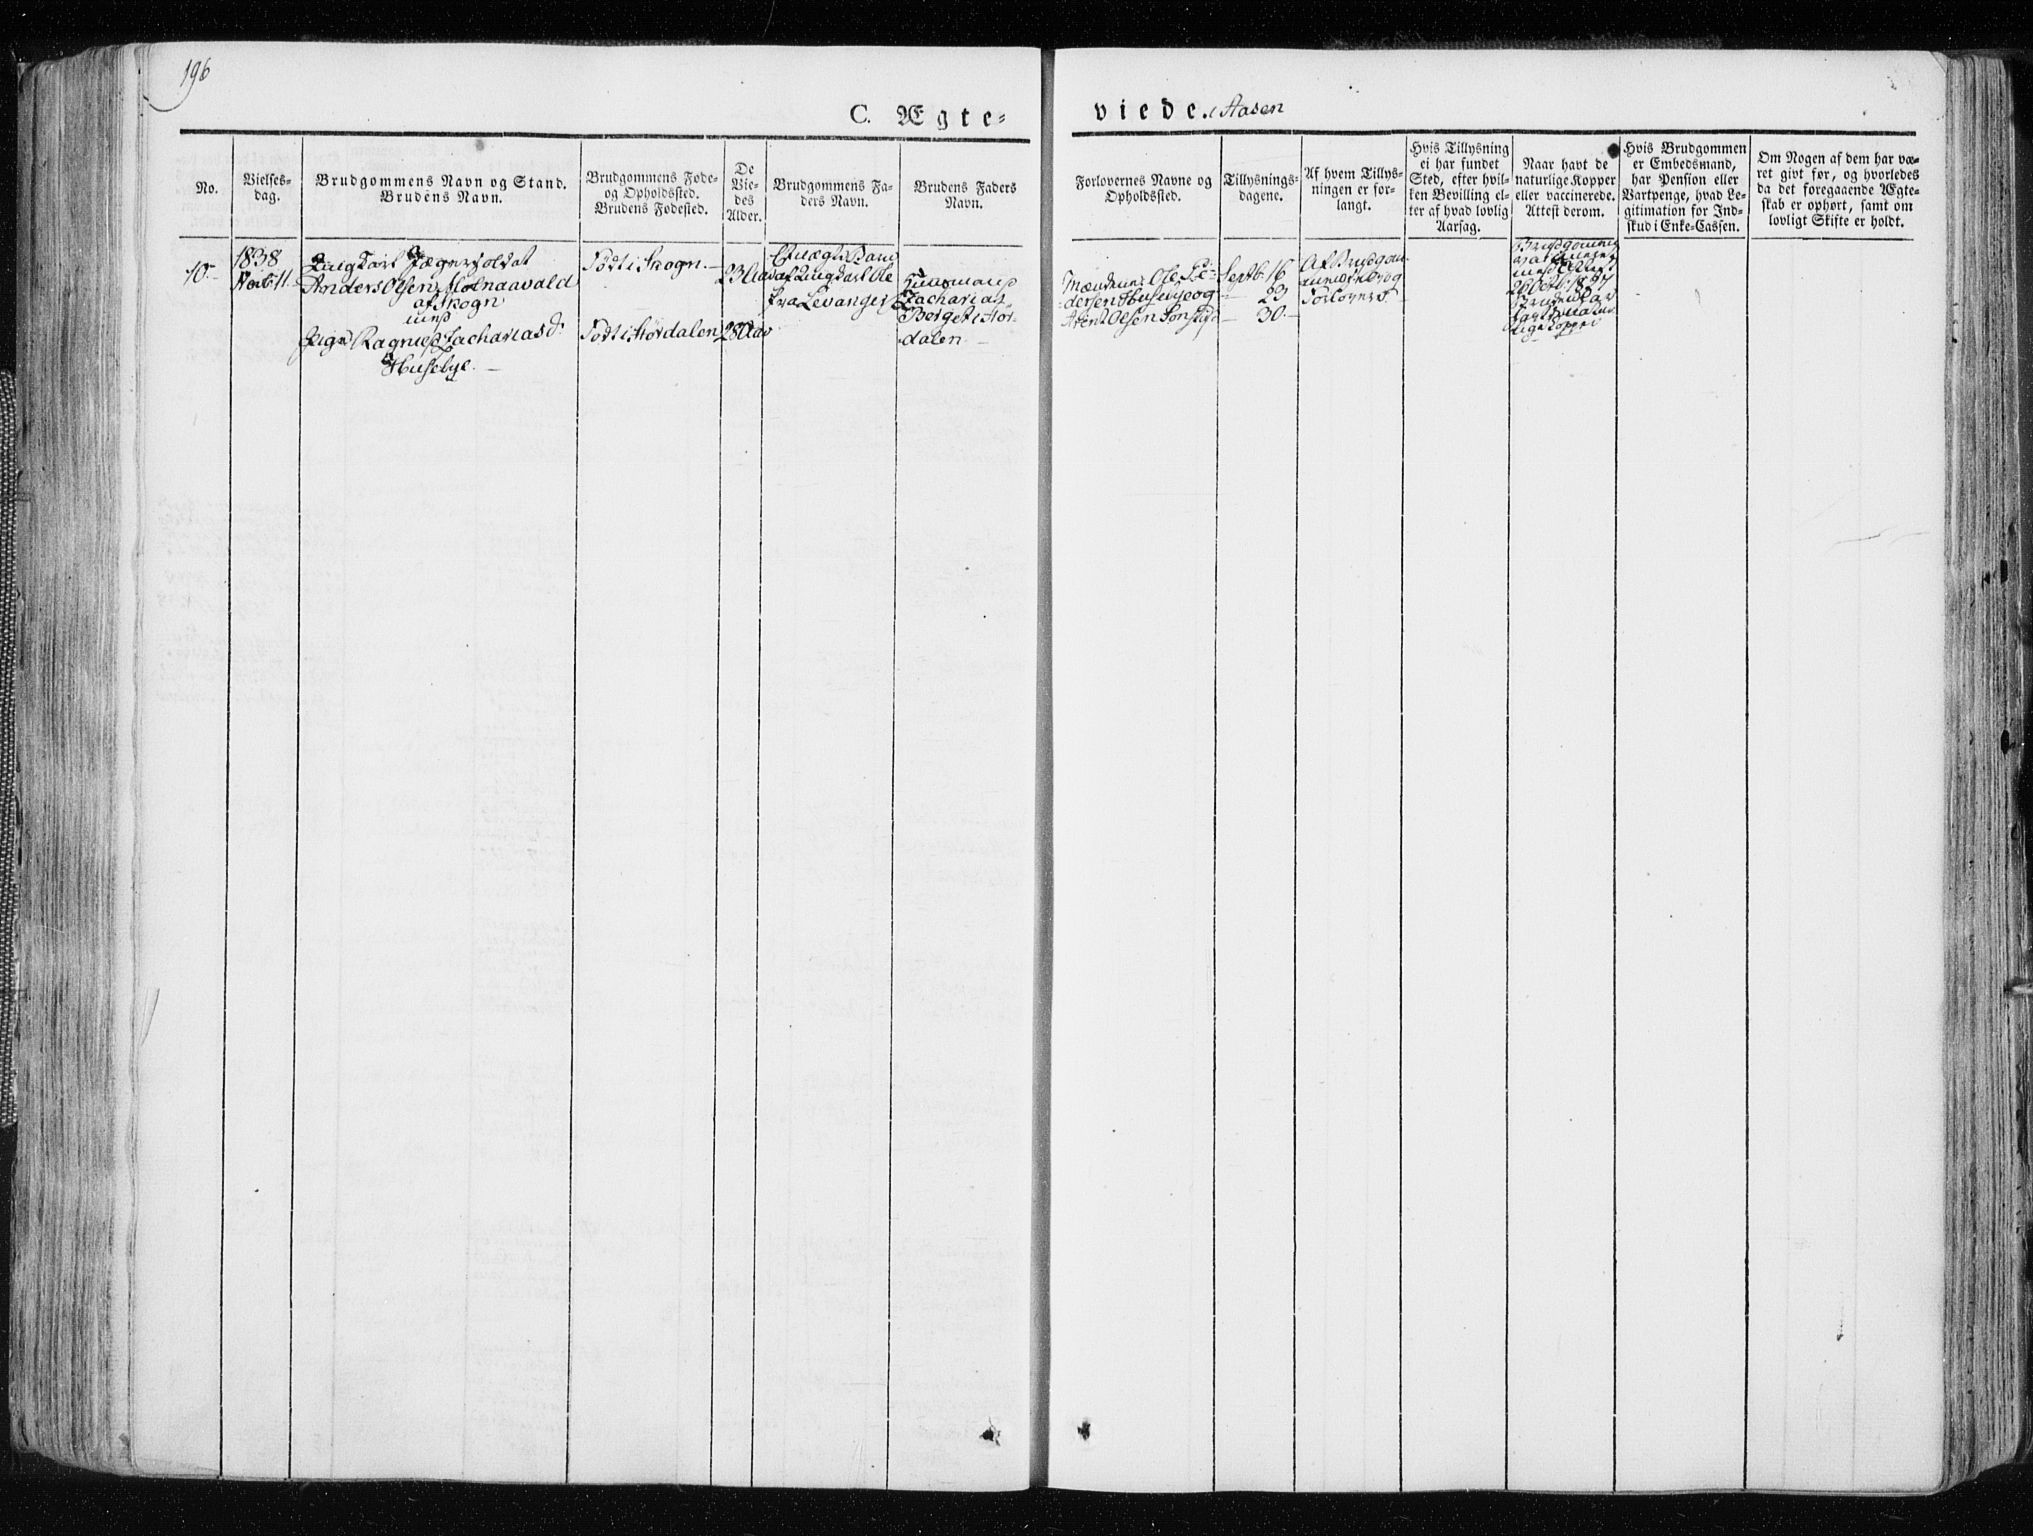 196
C. Ægte-
viede. i Aasen
No.
Vielses-
dag.
Brudgommens Navn og Stand.
Brudens Navn.
Brudgommens Føde-
og Opholdssted.
Brudens Fødested.
De
Vie-
des
Alder.
Brudgommens Fa-
ders Navn.
Brudens Faders
Navn.
Forlovernes Navne og
Opholdssted.
Tillysnings-
dagene.
Af hvem Tillys-
ningen er for-
langt.
Hvis Tillysning
ei har fundet
Sted, efter hvil-
ken Bevilling el-
ler af hvad lovlig
Aarsag.
Naar havt de
naturlige Kopper
eller vaccinerede.
Attest derom.
Hvis Brudgommen
er Embedsmand,
har Pension eller
Vartpenge, hvad Le-
gitimation for Ind-
skud i Enke-Cassen.
Om Nogen af dem har væ-
ret givt før, og hvorledes
da det foregaaende Ægte-
skab er ophørt, samt om
lovligt Skifte er holdt.
10-
1838
Novb 11
Ungkarl Jægersoldat
Anders Olsen
af Skogn
med
Pige Zachariasd.
Husebye. -
Født i Skogn. -
Født i Stordalen
23 Aar
28 Aar
Uægte Barn
af Ungkarl Ole
fra Levanger
Huusmand
Zacharias
Berget i Stor-
dalen. -
Mændene Ole Pe-
dersen Husebye og
Arent Olsen
Septb. 16
- 23
- 30. -
Af Brudgom-
men og
Forlovere
Brudgommen
vaccineret
med Attest
26 Octb. 1837
Bruden har
havt natur-
lige Kopper